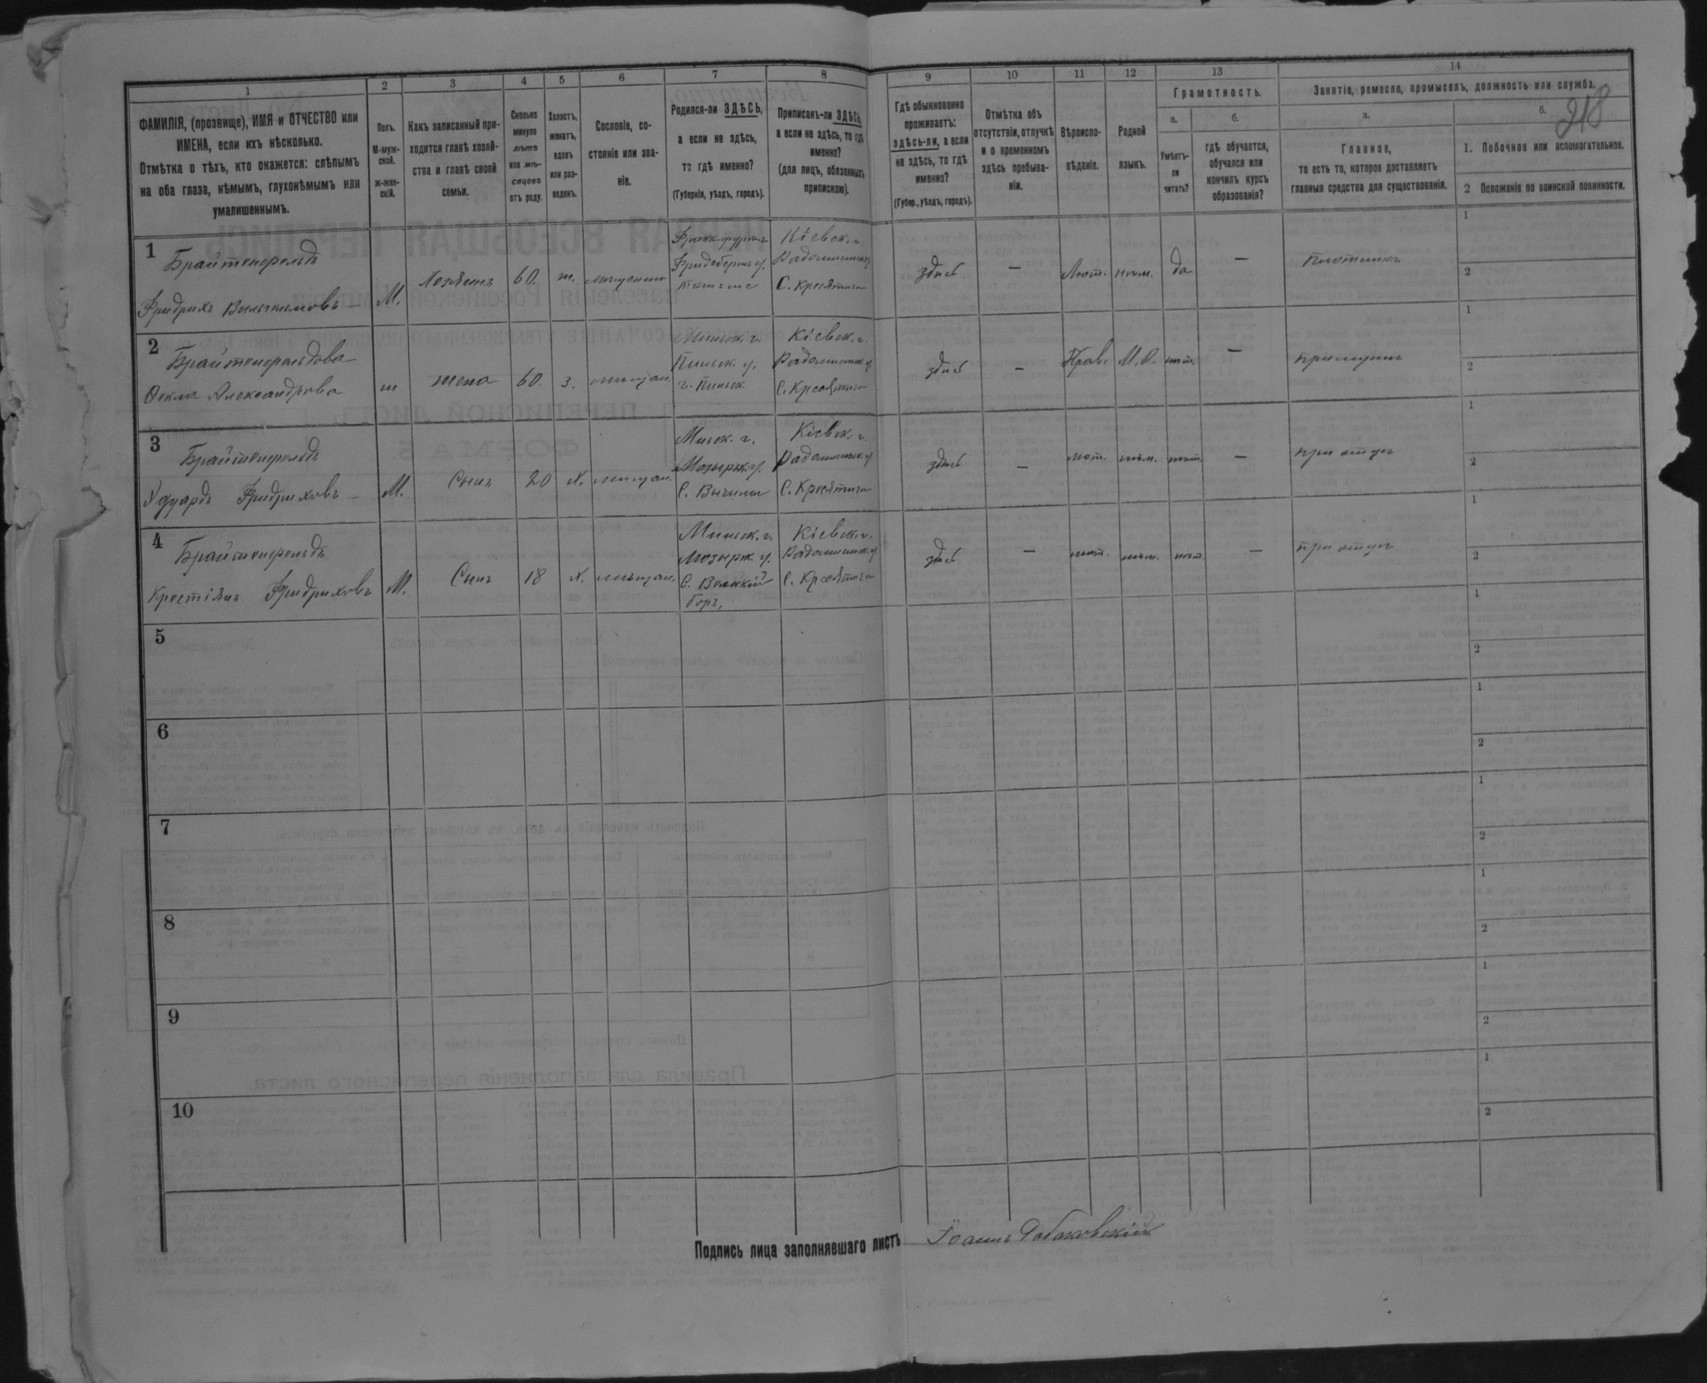 1 2 3 4 5 6 7 8 9 10 11 12 13 14
ФАМИЛІЯ, (прозвище), ИМЯ и ОТЧЕСТВО или
ИМЕНА, если ихъ нѣсколько.
Отмѣтка о тѣхъ, кто окажется: слѣпымъ
на оба глаза, нѣмымъ, глухонѣмымъ или
умалишеннымъ.
Полъ.
М-муж-
ской.
Ж-жен-
скій.
Какъ записанный при-
ходится главѣ хозяй-
ства и главѣ своей
семьи.
Сколько
минуло
лѣтъ
или мѣ-
сяцевъ
отъ роду.
Холостъ,
женатъ,
вдовъ
или раз-
веденъ.
Сословіе, со-
стояніе или зва-
ніе.
Родился-ли ЗДѢСЬ,
а если не здѣсь,
то гдѣ именно?
(Губернія, уѣздъ, городъ).
Приписанъ-ли ЗДѢСЬ,
а если не здѣсь, то гдѣ
именно?
(для лицъ, обязанныхъ
припискою).
Гдѣ обыкновенно
проживаетъ:
здѣсь-ли, а если
не здѣсь, то гдѣ
именно?
(Губер., уѣздъ, городъ).
Отмѣтка объ
отсутствіи, отлучкѣ
и о временномъ
здѣсь пребыва-
ніи.
Вѣроиспо-
вѣданіе.
Родной
языкъ.
Грамотность.
а.
Умѣетъ-
ли
читать?
б.
гдѣ обучается,
обучался или
кончилъ курсъ
образованія?
Занятіе, ремесло, промыселъ, должность или служба.
а.
Главное,
то есть то, которое доставляетъ
главныя средства для существованія.
б.
218
1. Побочное или вспомогательное.
2 Положеніе по воинской повинности.
1
Брайтенфельдъ
Фридрихъ
М.
Хозяинъ
60.
ж.
мѣщанинъ
Кіевск. г.
Радомышльск. у.
здѣсь
—
Лют.
нѣм.
да
—
Плотникъ
1
2
2
Брайтенфельдова
Фекла Александрова
ж
жена
60.
з.
мѣщан.
Минск. г.
Пинск. у.
г. Пинск
Кіевск. г.
Радомышльск. у.
здѣсь
—
Прав.
М. Р.
нѣт.
—
при мужѣ
1
2
3
Брайтенфельдъ
Эдуардъ Фридриховъ
М.
Сынъ
20
Х.
мѣщан.
Минск. г.
Мозырск. у.
Кіевск. г.
Радомышльск. у.
здѣсь
—
лют.
нѣм.
нѣт.
—
при отцѣ
1
2
4
Брайтенфельдъ
Крестіянъ Фридриховъ
М.
Сынъ
18
Х.
мѣщан.
Минск. г.
Мозырск. у.
С. Великій
боръ,
Кіевск. г.
Радомышльск. у.
здѣсь
—
лют.
нѣм.
нѣт.
—
при отцѣ
1
2
5
1
2
6
1
2
7
1
2
8
1
2
9
1
2
10
1
2
Подпись лица заполнявшаго листъ